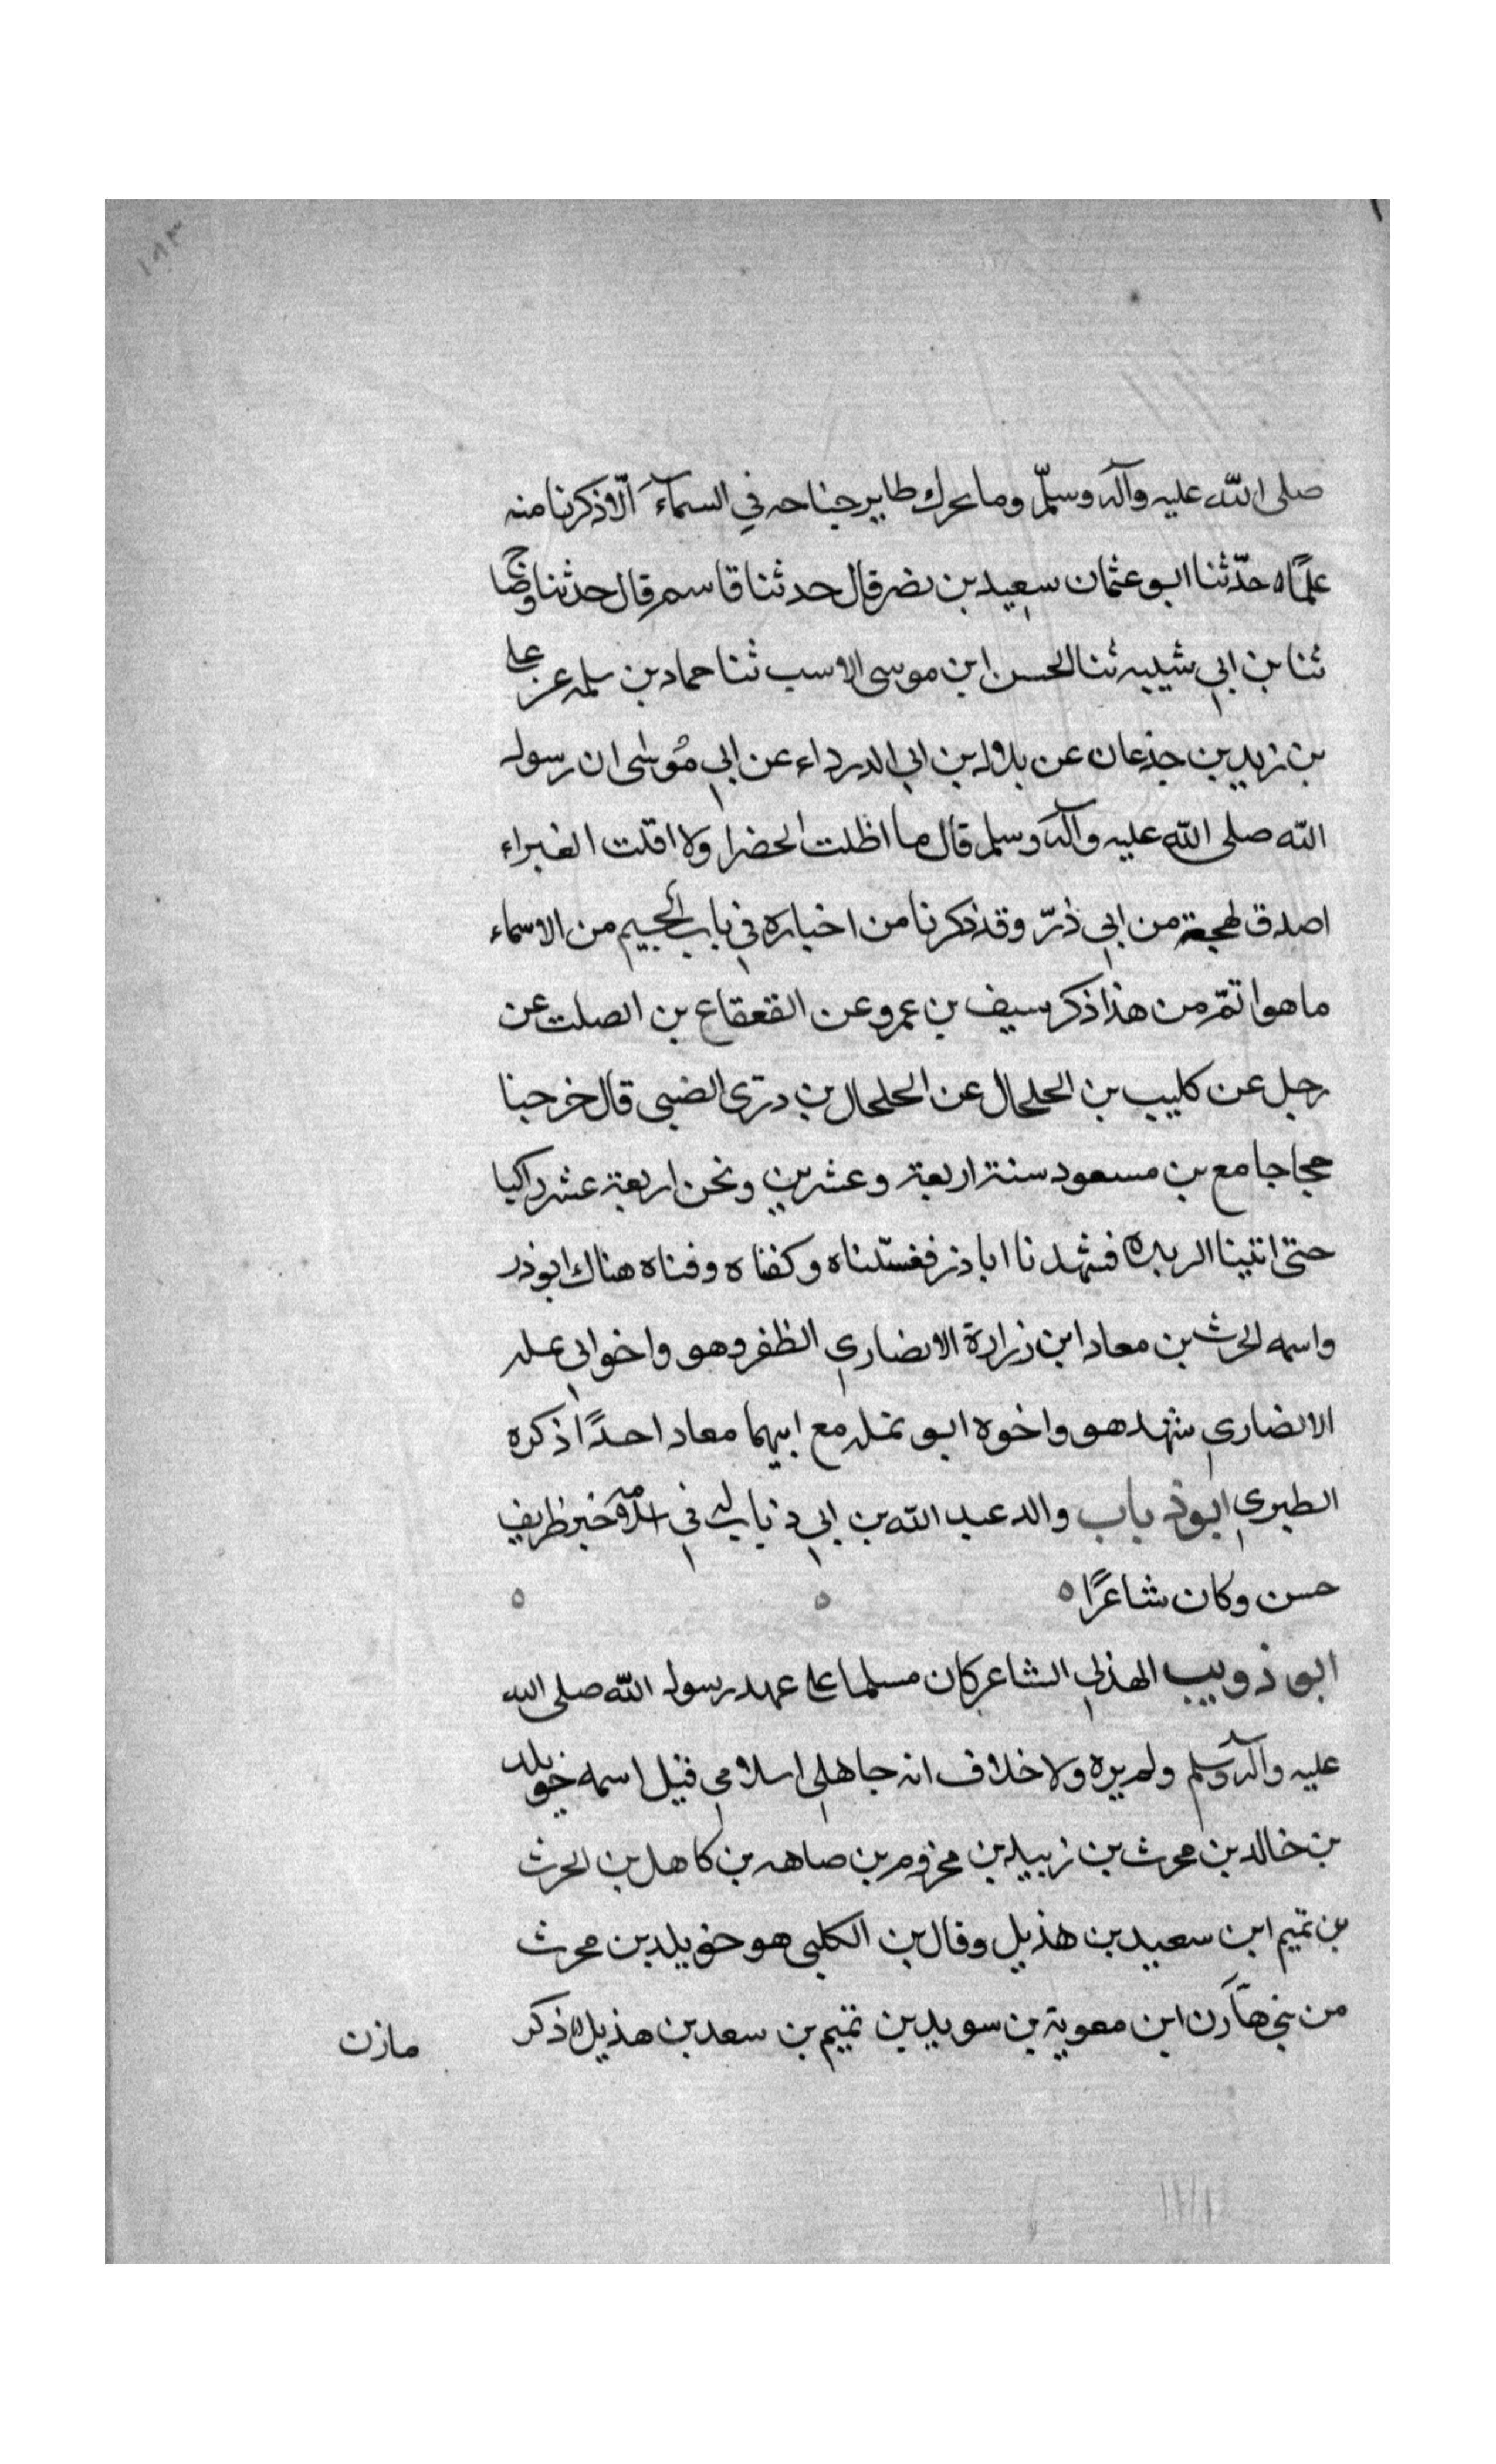 ١٨٣
صلى الله عليه وآله وسلّم وما يحرك طاير جناحه في السمآء الّا ذكرنا منه
علمًا ه حدّثنا ابو عثمان سعيد بن نصر قال حدثنا قاسم قال حدثنا وضاح
ثنا بن ابي شيبه ثنا الحسن ابن موسى الاسب ثنا حماد بن سلمه عن على
بن زيد بن جذعان عن بلال بن ابي الدرداء عن ابي مُوسٰى ان رسول
الله صلى الله عليه وآله وسلم قال ما اظلت الخضرا ولا اقلت الغبراء
اصدق لهجة من ابي ذرّ وقد ذكرنا من اخباره في باب الجيم من الاسماء
ما هو اتمّ من هذا ذكر سيف بن عمرو عن القعقاع بن الصلت عن
رجل عن كليب بن الحلحال عن الحلحال بن درّى الضبى قال خرجنا
حجاجا مع بن مسعود سنة اربعة وعشرين ونحن اربعة عشر راكبا
حتى اتينا الربده فشهدنا ابا ذر فغسّلناه وكفناه وفناه هناك ابوذر
واسمه الحرث بن معاد ابن زرارة الانصاري الظفر وهو واخو ابى عله
الانصاري شهد هو واخوه ابو نمله مع ابيهما معاد احدًا ذكره
الطبري ابوذ باب والد عبد الله بن ابي ذباب له في اسلامه خبر ظريف
حسن وكان شاعرًا ه ه ه
ابو ذويب الهذلي الشاعر كان مسلما على عهد رسول الله صلى الله
عليه وآله وسلم ولم يره ولا خلاف انه جاهلي اسلامي قيل اسمه خويلد
بن خالد بن محرث بن زبيد بن مخزوم بن صاهه بن كاهل بن الحرث
بن تميم ابن سعيد بن هذيل وقال بن الكلبى هو خويلد بن محرث
من بني هآرن ابن معوية بن سويد بن تميم بن سعد بن هذيل ه ذكر
مازن